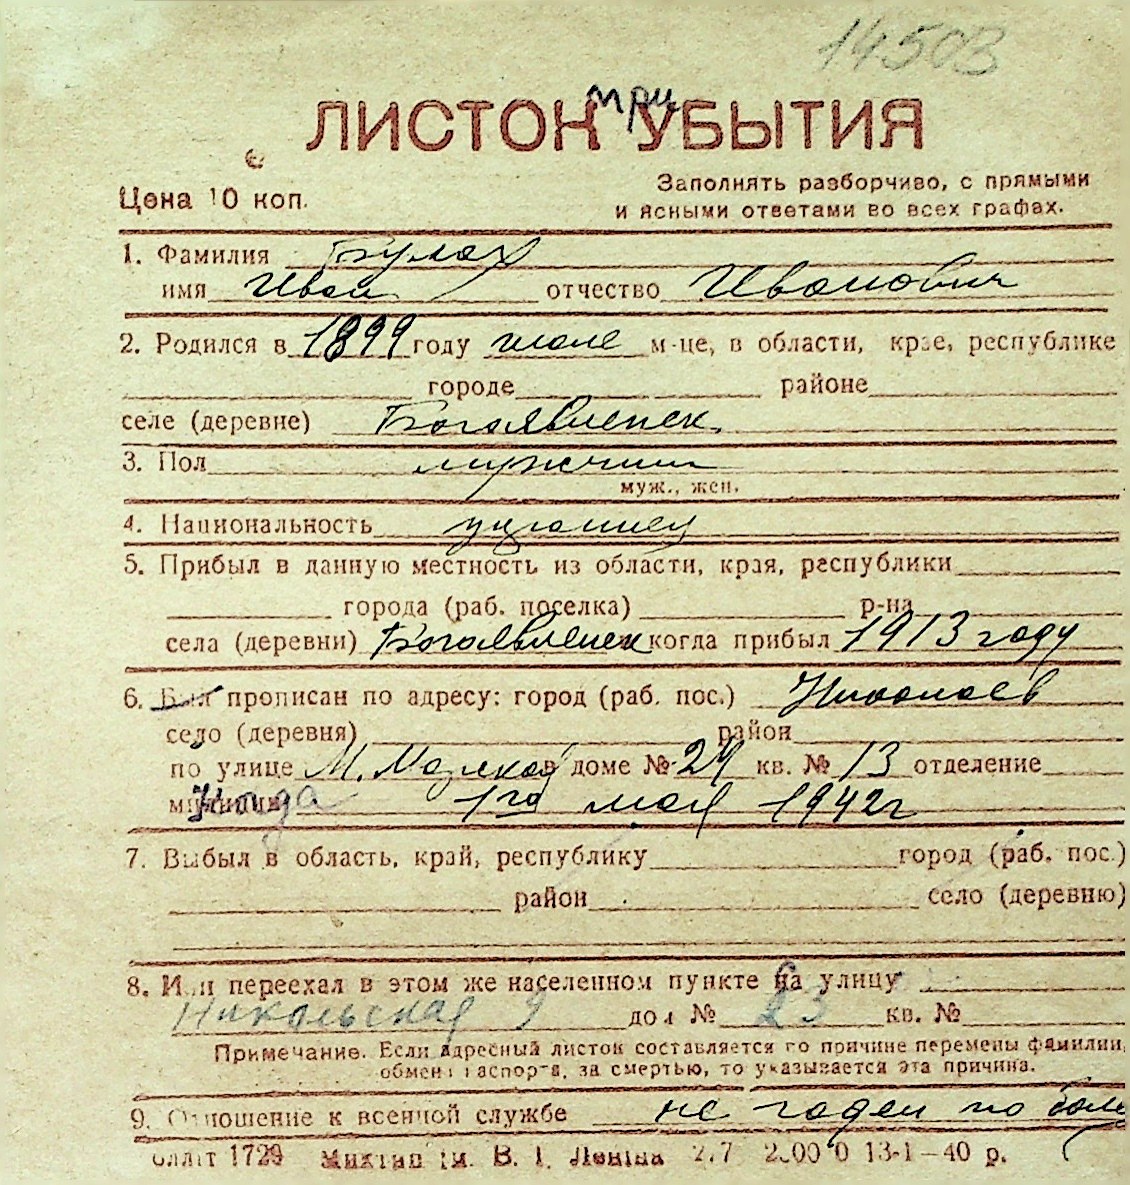 14503
ЛИСТОК при УБЫТИЯ
Цена 10 коп.
Заполнять разборчиво, с прямыми
и ясными ответами во всех графах.
1. Фамилия Булах
имя Иван отчество Иванович
2. Родился в 1899 году июле м-це, в области, крае, республике
городе районе
селе (деревне) Богоявленск.
3. Пол мужчина
муж., жен.
4. Национальность украинец
5. Прибыл в данную местность из области, края, республики
города (раб. поселка) р-на
села (деревни) Богоявленск когда прибыл 1913 году
6. Был прописан по адресу: город (раб. пос.) Николаев
село (деревня) район
по улице М. Морская в доме № 24 кв. № 13 отделение
милиции Когда 1го мая 1942г
7. Выбыл в область, край, республику город (раб. пос.)
район село (деревню)
8. Или переехал в этом же населенном пункте на улицу
Никольская 9 дом № 23 кв. №
Примечание. Если адресный листок составляется по причине перемены фамилии,
обмена паспорта, за смертью, то указывается эта причина.
9. Отношение к военной службе не годен по боле
1729 им. В. І. Леніна 13-1—40 р.